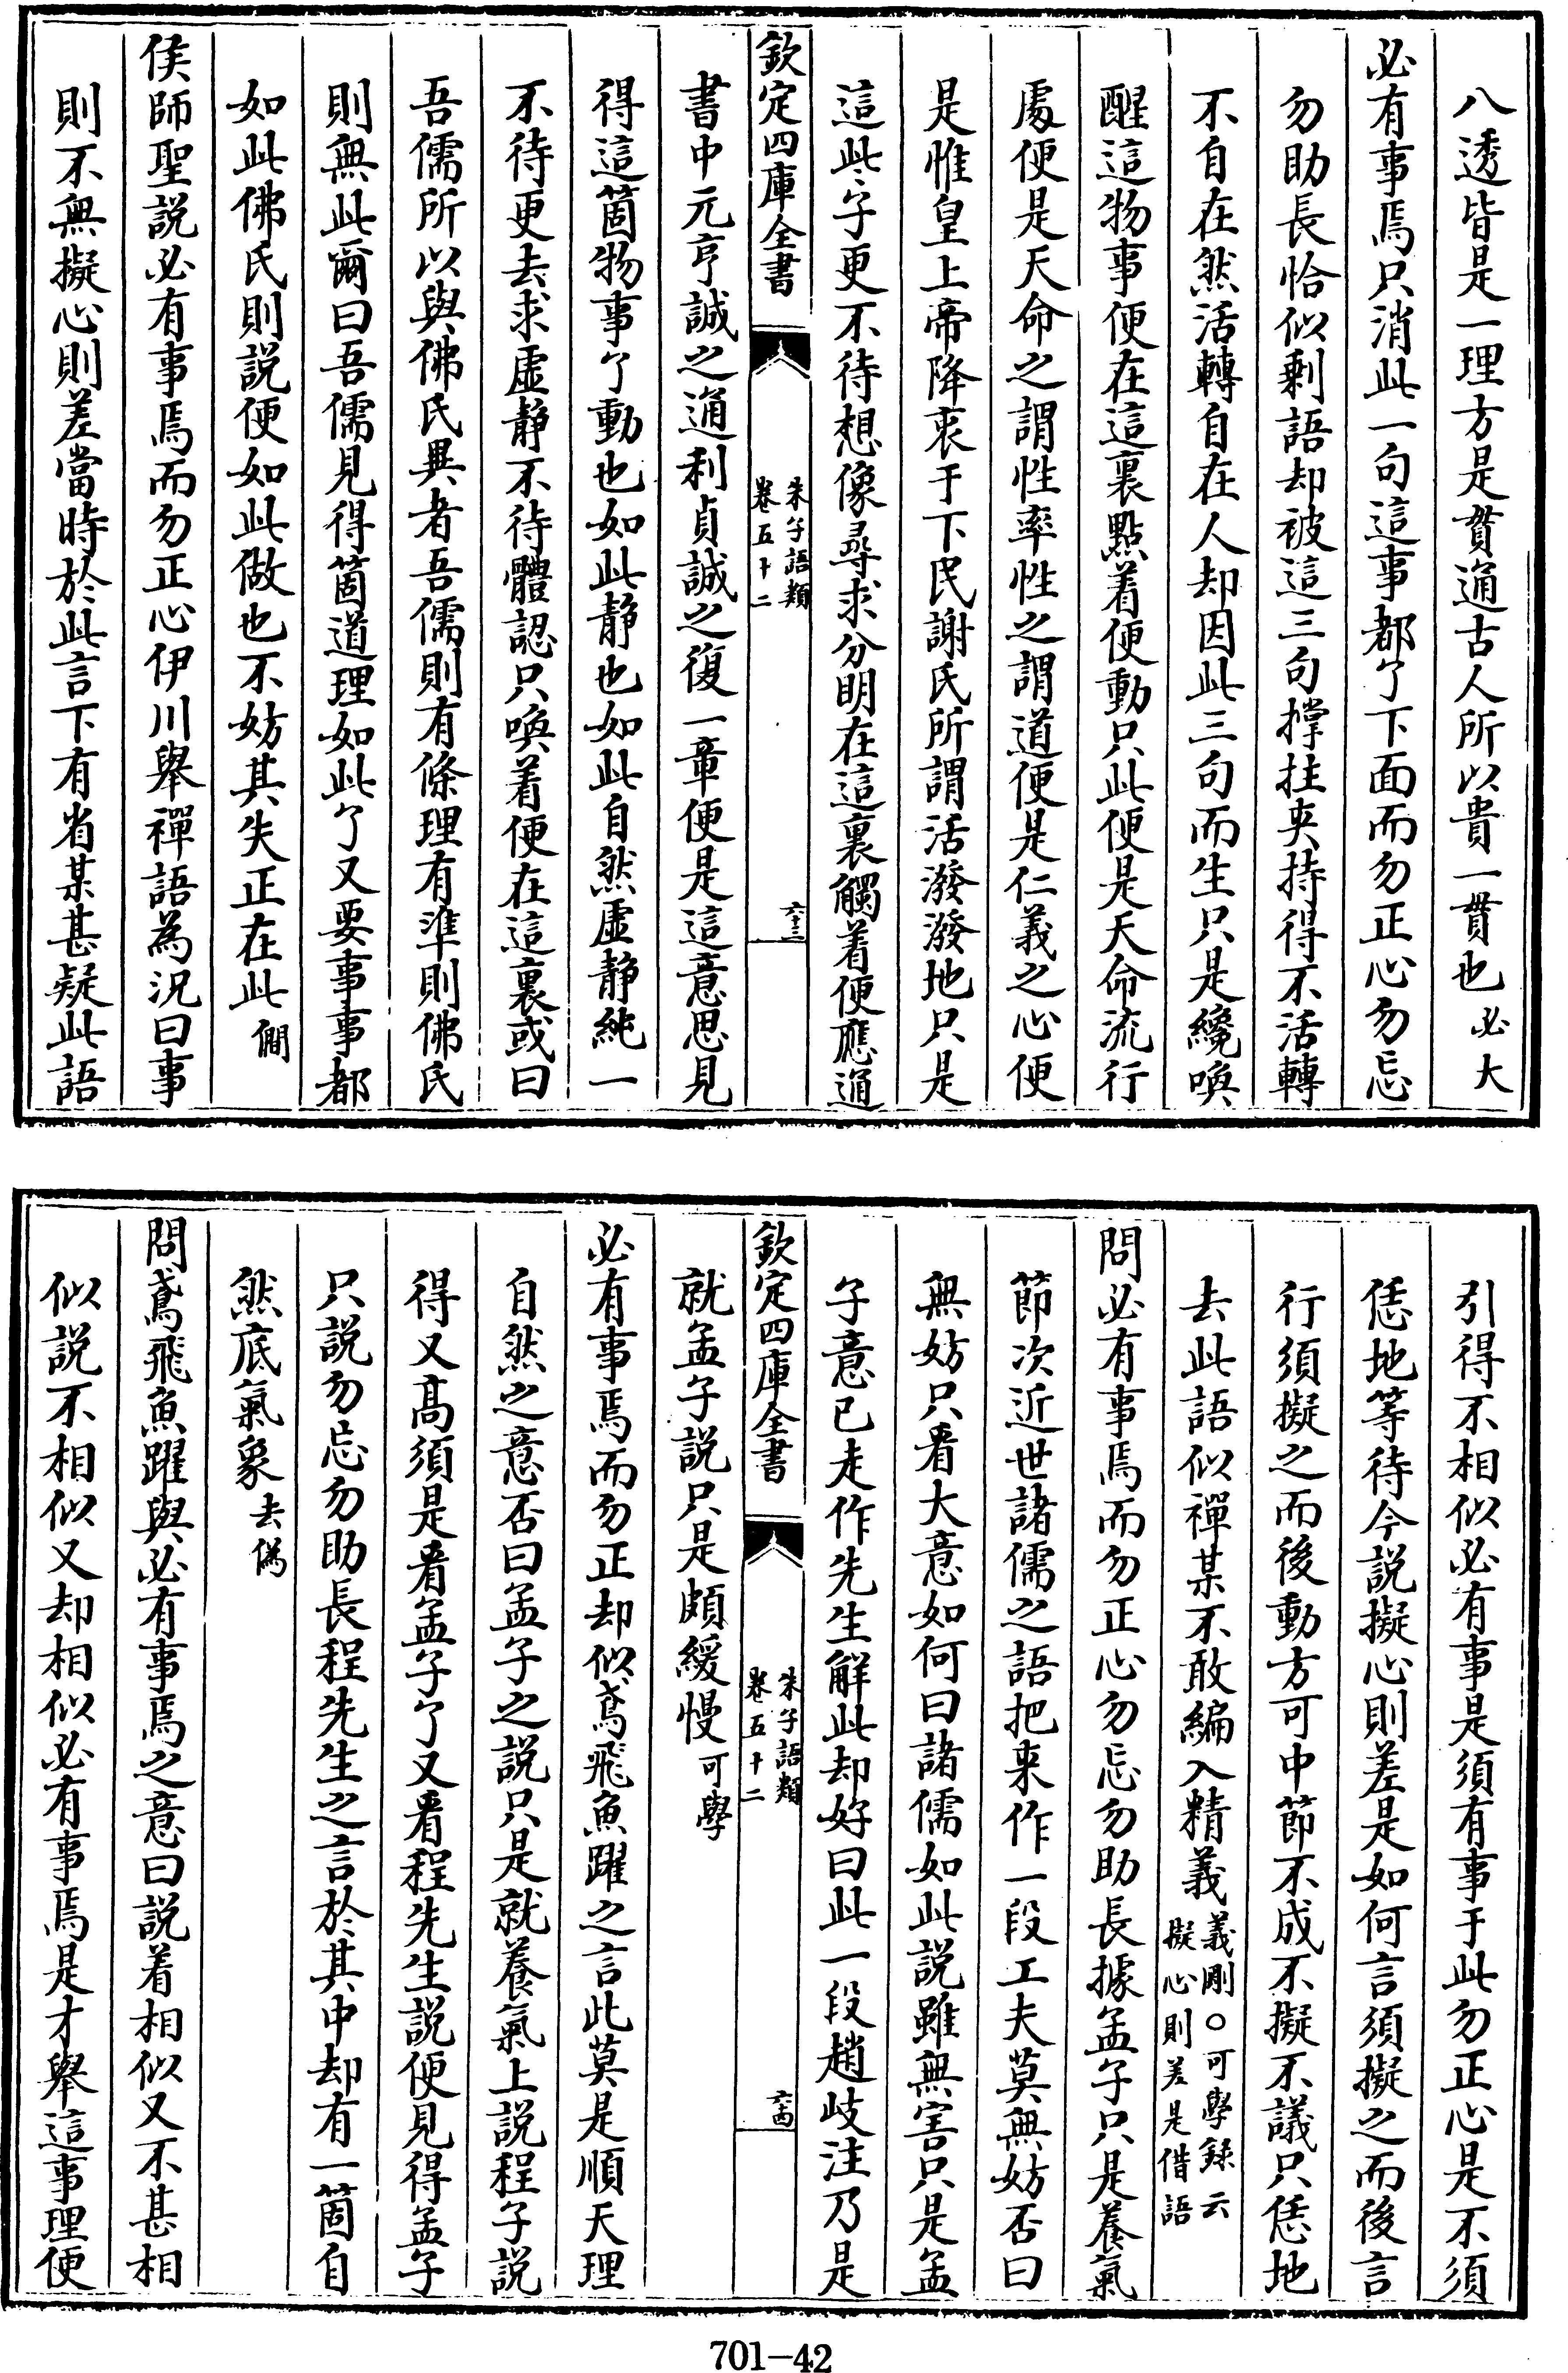 八透皆是一理方是貫通古人所以貴一貫也必大
必有事焉只消此一句這事都了下面而勿正心勿忘
勿助長恰似剩語却被這三句撑拄夾持得不活轉
不自在然活轉自在人却因此三句而生只是纔喚
醒這物事便在這裏點着便動只此便是天命流行
處便是天命之謂性率性之謂道便是仁義之心便
是惟皇上帝降衷于下民謝氏所謂活潑潑地只是
這些子更不待想像尋求分明在這裏觸着便應通
欽定四庫全書
朱子語類
卷五十二
六十三
書中元亨誠之通利貞誠之復一章便是這意思見
得這箇物事了動也如此静也如此自然虛静純一
不待更去求虛静不待體認只喚着便在這裏或曰
吾儒所以與佛氏異者吾儒則有條理有準則佛氏
則無此爾曰吾儒見得箇道理如此了又要事事都
如此佛氏則説便如此做也不妨其失正在此僩
侯師聖説必有事焉而勿正心伊川舉禪語為況曰事
則不無擬心則差當時於此言下有省某甚疑此語
引得不相似必有事是須有事于此勿正心是不須
恁地等待今説擬心則差是如何言須擬之而後言
行須擬之而後動方可中節不成不擬不議只恁地
去此語似禪某不敢編入精義義剛○可學錄云
擬心則差是借語
問必有事焉而勿正心勿忘勿助長據孟子只是養氣
節次近世諸儒之語把来作一段工夫莫無妨否曰
無妨只看大意如何曰諸儒如此説雖無害只是孟
子意已走作先生解此却好曰此一段趙岐注乃是
欽定四庫全書
朱子語類
卷五十二
六十四
就孟子説只是頗緩慢可學
必有事焉而勿正却似鳶飛魚躍之言此莫是順天理
自然之意否曰孟子之説只是就養氣上説程子説
得又髙須是看孟子了又看程先生説便見得孟子
只説勿忘勿助長程先生之言於其中却有一箇自
然底氣象去偽
問鳶飛魚躍與必有事焉之意曰説着相似又不甚相
似説不相似又却相似必有事焉是才舉這事理便
701—42